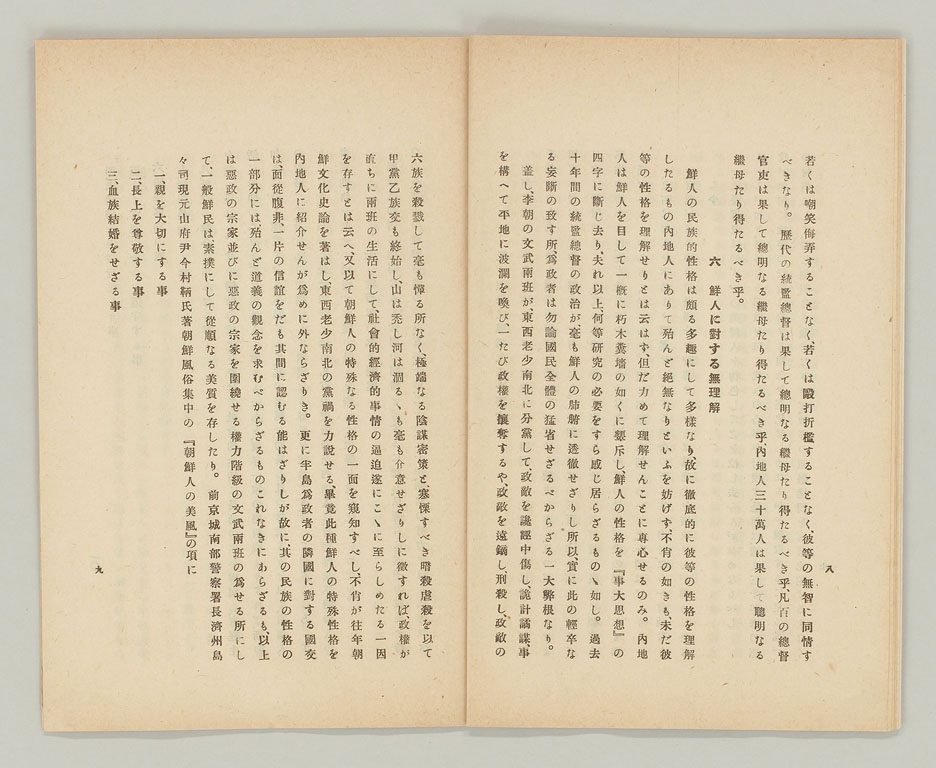 若くは嘲笑侮弄することなく、若くは毆打折檻することなく、彼等の無智に同情す
べきなり。歷代の統監總督は果して總明なる繼母たり得たるべき乎、凡百の總督
官吏は果して總明なる繼母たり得たるべき乎、內地人三十萬人は果して聰明なる
繼母たり得たるべき乎。
六 鮮人に對する無理解
鮮人の民族的性格は頗る多趣にして多樣なり、故に徹底的に彼等の性格を理解
したるもの內地人にありて殆んど絕無なりといふを妨げす、不肖の如きも未だ彼
等の性格を理解せりとは云はす、但だ力めて理解せんことに專心せるのみ。內地
人は鮮人を目して一槪に朽木糞墻の如くに貶斥し、鮮人の性格を『事大思想』の
四字に斷じ去り、夫れ以上、何等硏究の必要をすら感じ居らざるものゝ如し。過去
十年間の統監總督の政治が、毫も鮮人の肺腑に透徹せざりし所以、實に此の輕卒な
る妄斷の致す所、爲政者は勿論國民全體の猛省せざるべからざる一大弊根なり。
蓋し、李朝の文武兩班が、東西老少南北に分黨して、政敵を讒誣中傷し、詭計譎謀、事
を構へて平地に波瀾を喚び、一たび政權を攘奪するや、政敵を遠竄し、刑殺し、政敵の
八
六族を殺戮して毫も憚る所なく、極端なる陰謀密策と、寒慄すべき暗殺虐殺を以て
甲黨乙族交も終始し、山は禿し河は涸るゝも毫も介意せざりしに徵すれば、政權が
直ちに兩班の生活にして、社會的經濟的事情の逼迫遂にこゝに至らしめたる一因
を存すとは云へ、又以て朝鮮人の特殊なる性格の一面を窺知すべし、不肖が往年朝
鮮文化史論を著はし、東西老少南北の黨禍を力說せる、畢竟此種鮮人の特殊性格を
內地人に紹介せんが爲めに外ならざりき。更に半島爲政者の隣國に對する國交
は、面從腹非、一片の信誼をだも其間に認むる能はざりしが故に、其の民族の性格の
一部分には殆んど道義の觀念を求むべからざるものこれなきにあらざるも、以上
は惡政の宗家並びに惡政の宗家を圍繞せる權力階級の文武兩班の爲せる所にし
て、一般鮮民は素撲にして從順なる美質を存したり。前京城南部警察署長濟州島
々司現元山府尹今村鞆氏著朝鮮風俗集中の『朝鮮人の美風』の項に
一、親を大切にする事
二、長上を尊敬する事
三、血族結婚をせざる事
九